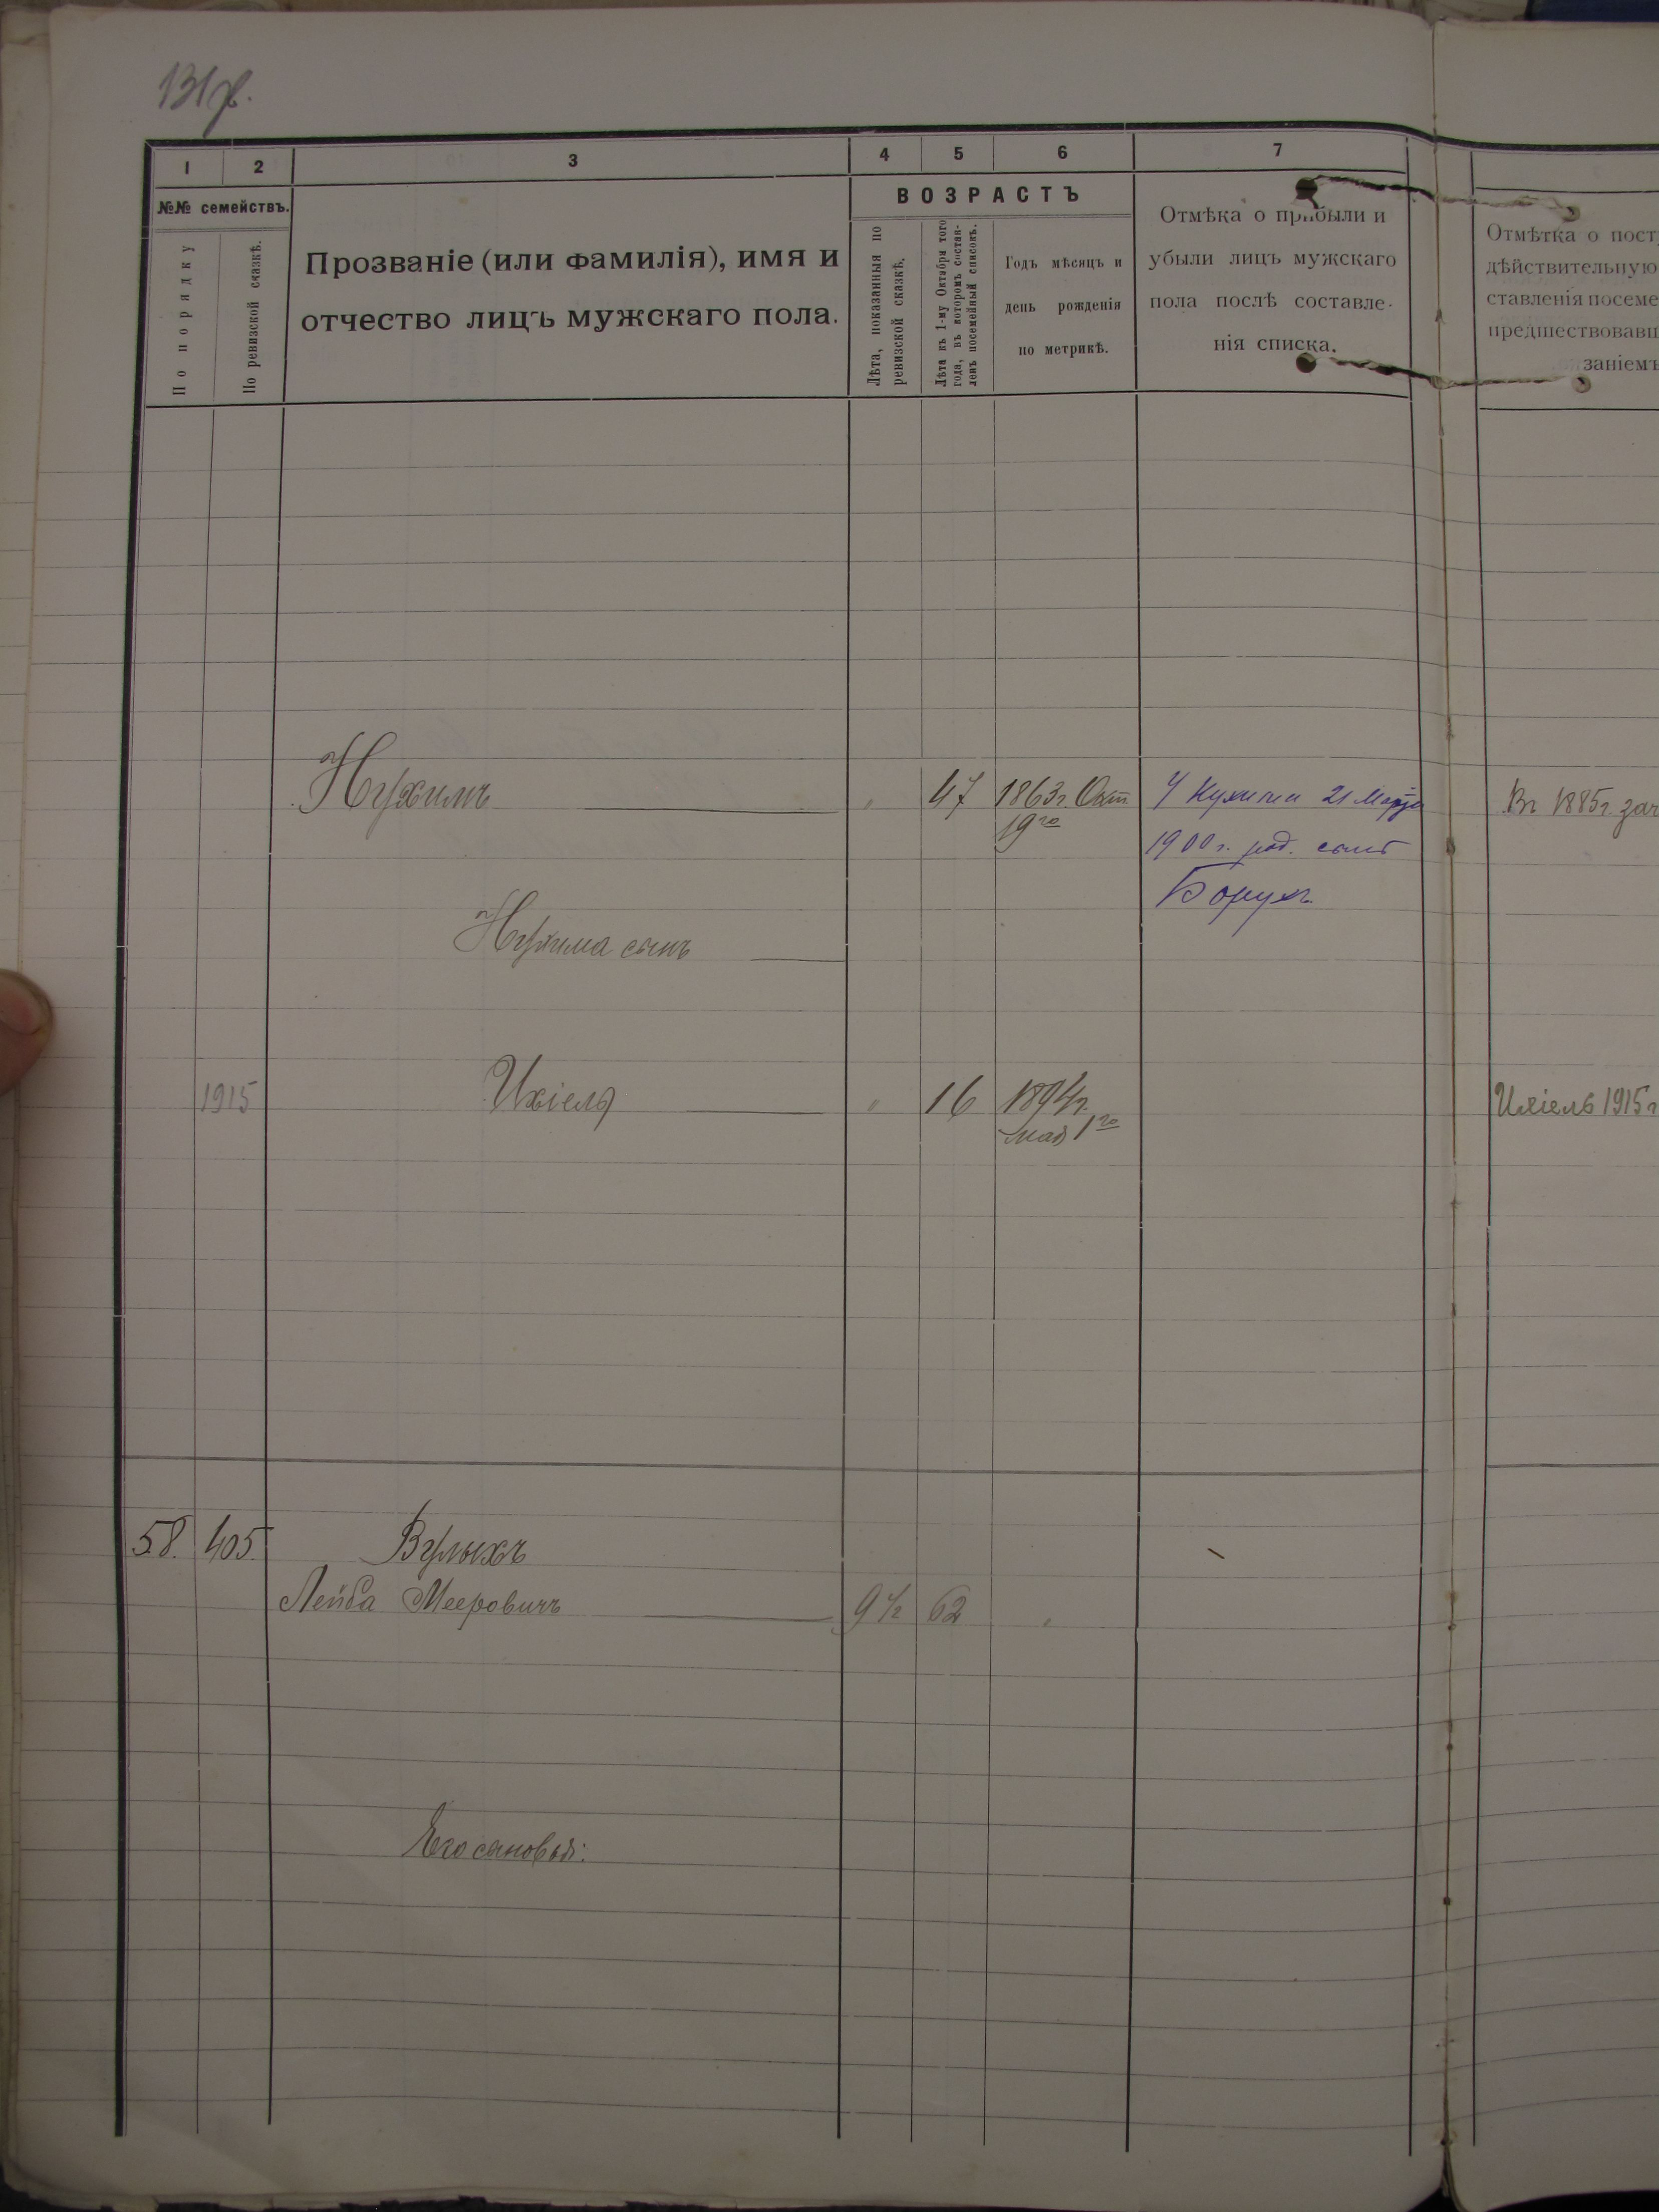 1 2 3 4 5 6 7
№№ семействъ.
По порядку
По ревизской сказкѣ.
Прозваніе (или фамилія), имя и
отчество лицъ мужскаго пола.
ВОЗРАСТЪ
Лѣта, показанныя по
ревизской сказкѣ.
Лѣта къ 1-му Октября того
года, въ которомъ состав-
ленъ посемейный списокъ.
Годъ мѣсяцъ и
день рожденія
по метрикѣ.
Отмѣка о прибыли и
убыли лицъ мужскаго
пола послѣ составле-
нія списка.
Отмѣтка о пост
дѣйствительную
ставленія посеме
предшествовавш
заніемъ
Нухимъ " 47 1863г. Окт.
19го
У Нухима 21 Марта
1900 г. род. сынъ
Борухъ.
Въ 1885г. зач
Нухима сынъ
1915 Ихіель " 16 1894г.
мая 1го
Ихіель 1915г
58. 405. Вулыхъ
Лейба Мееровичъ 9 1/2 62 "
Его сыновья: